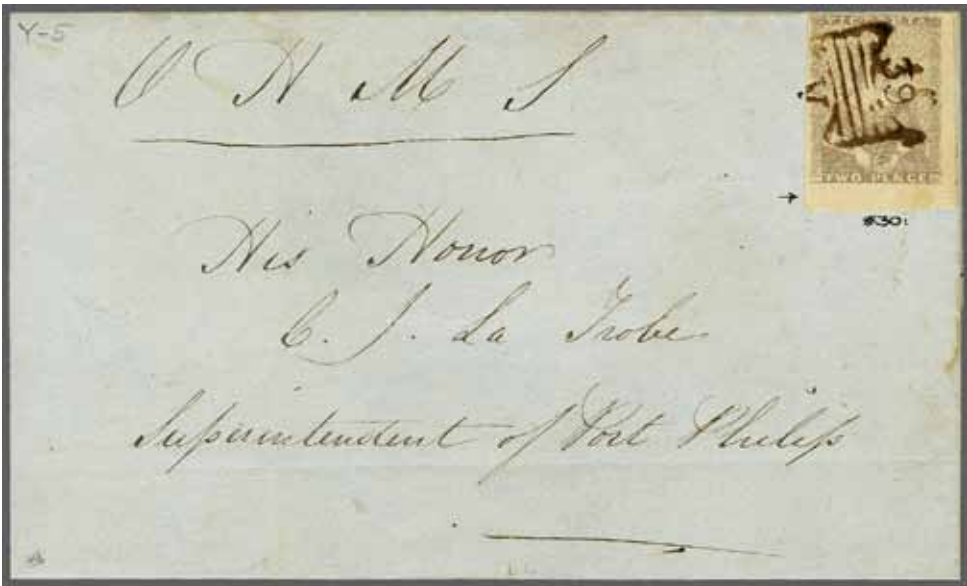 Y-5
O H M S
39
V
TWO PENCE
#30:
His Honor
C. J. La Trobe
Superintendent of Port Philip